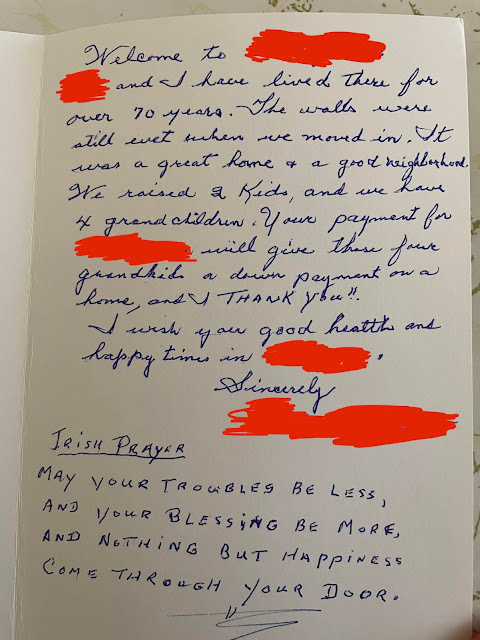 Welcome to
and I have lived there for
over 70 years. The walls were
still wet when we moved in. It
was a great home & a good neighborhood.
We raised 2 Kids, and we have
4 grandchildren. Your payment for
will give those four
grandkids a down payment on a
home, and I THANK YOU!!.
I wish you good health and
happy times in .
Sincerely
IRISH PRAYER
MAY YOUR TROUBLES BE LESS,
AND YOUR BLESSING BE MORE,
AND NOTHING BUT HAPPINESS
COME THROUGH YOUR DOOR.